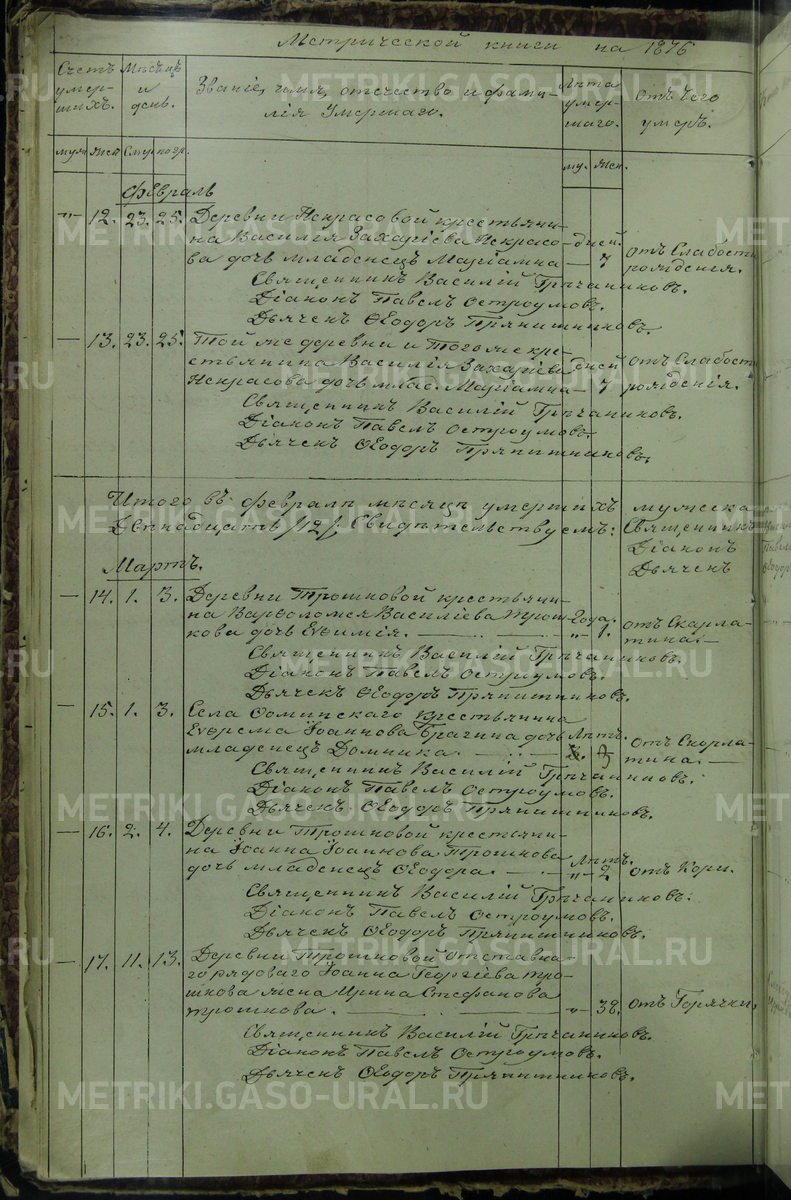 Метрической книги на 1876
Счетъ умер-шихъ. Мѣсяцъ и день. Званіе, имя, отечество и фами-лія Умершаго. Лѣта умер-шаго. Отъ чего умеръ.
муж. жен. Смер. погр. му. жен.
Февраль
" 12. 23. 25. Деревни Некрасовой крестьяни-
на Василія Захаріева Некрасо- дней. отъ Слабости
ва дочь младенецъ Маріамна — 7 рожденія.
Священникъ Василій Грѣчаниковъ.
Діаконъ Павелъ Остроумовъ.
Дьячекъ Ѳеодоръ Прянишниковъ.
— 13. 23. 25. Той же деревни и того же кре-
стьянина Василія Захаріева дней отъ Слабости
Некрасова дочь млад. Маріамна — 7 рожденія.
Священникъ Василій Грѣчаниковъ.
Діаконъ Павелъ Остроумовъ.
Дьячекъ Ѳеодоръ Прянишниковъ.
Итого въ Февралѣ мѣсяцѣ умершихъ мужеска
Двѣнадцать /12/. Свидѣтельствуемъ: Священникъ
Діаконъ
Дьячекъ
Мартъ.
— 14. 1. 3. Деревни Трошковой крестьяни-
на Варѳоломея Василіева Трош- Года. отъ Скарла-
кова дочь Евѳимія. " 1. тина. —
Священникъ Василій Грѣчаниковъ.
Діаконъ Павелъ Остроумовъ.
Дьячекъ Ѳеодоръ Прянишниковъ.
— 15. 1. 3. Села Фоминскаго крестьянина
Ефрема Іоаннова Брагина дочь Лѣтъ. отъ Скарла-
младенецъ Домника. тина. —
Священникъ Василій Грѣчаниковъ.
Діаконъ Павелъ Остроумовъ.
Дьячекъ Ѳеодоръ Прянишниковъ.
— 16. 2. 4. Деревни Трошковой крестьяни-
на Іоанна Іоаннова Трошкова Лѣтъ.
дочь младенецъ Ѳеодора. " 2 отъ Кори.
Священникъ Василій Грѣчаниковъ.
Діаконъ Павелъ Остроумовъ.
Дьячекъ Ѳеодоръ Прянишниковъ.
— 17. 11. 13. Деревни Трошковой отставна-
го рядоваго Іоанна Георгіева Тро-
шкова жена Ирина Стефанова
Трошкова. " 38. отъ Горячки.
Священникъ Василій Грѣчаниковъ.
Діаконъ Павелъ Остроумовъ.
Дьячекъ Ѳеодоръ Прянишниковъ.
METRIKI.GASO-URAL.RU